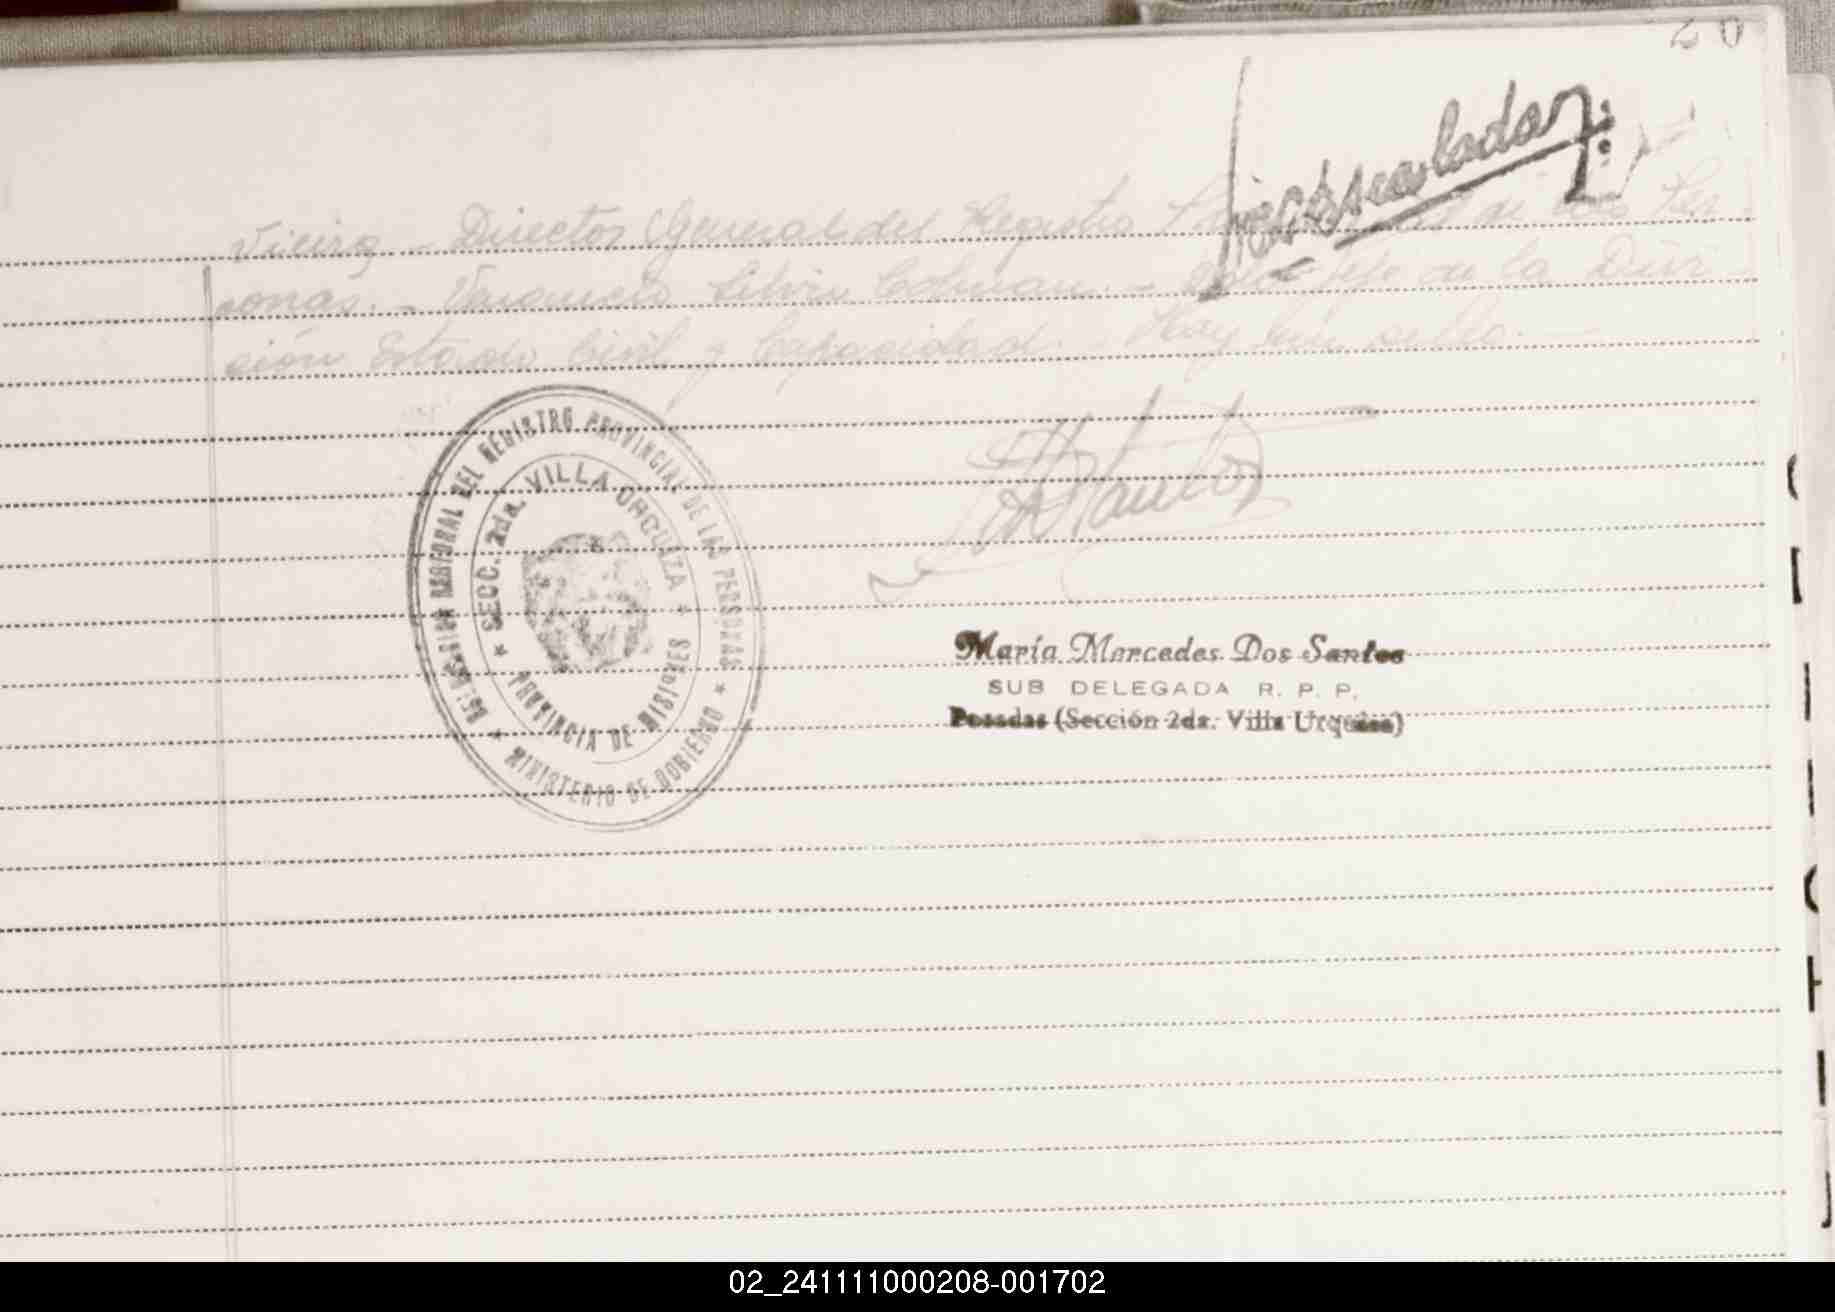 20
Vieira - Director General del Registro
sonas. - Colman. - de la Divi
sión Estado Civil y Capacidad. - Hay un sello. -
DELEGACION REGIONAL DEL REGISTRO PROVINCIAL DE LAS PERSONAS
* SECC. 2da. VILLA URQUIZA *
PROVINCIA DE MISIONES
* MINISTERIO DE GOBIERNO *
María Mercedes Dos Santos
SUB DELEGADA R. P. P.
Posadas (Sección 2da. Villa Urquiza)
02_241111000208-001702